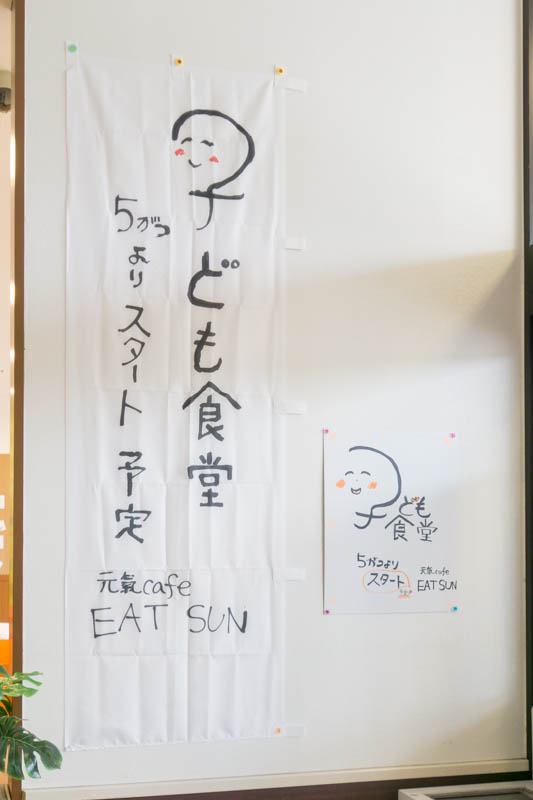 子ども食堂
5がつよりスタート予定
元氣cafe
EAT SUN
子ども
食堂
5がつより
スタート
元氣cafe
EAT SUN